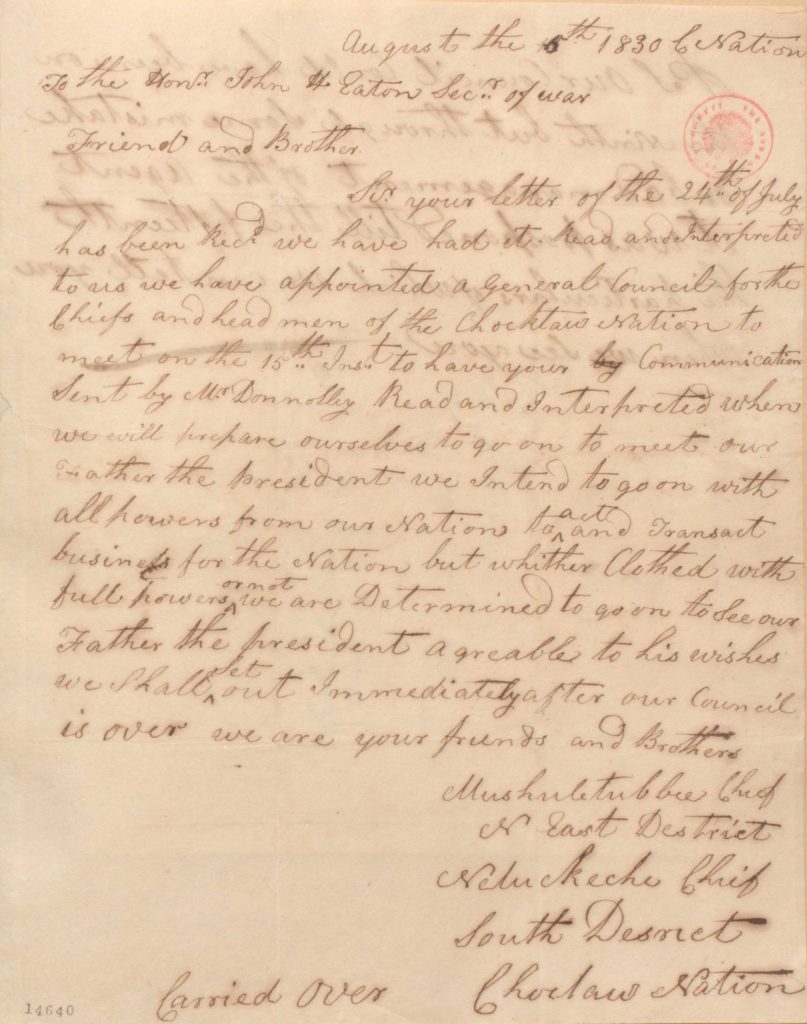 August the 5th 1830 C Nation
To the Honr. John H Eaton Secr. of war
Friend and Brother
Sr. your letter of the 24th of July
has been Recd. we have had it Read and Interpreted
to us we have appointed a General Council for the
Chiefs and head men of the Chocktaw Nation to
meet on the 15th Inst. to have your by Communication
Sent by Mr. Donnolley Read and Interpreted when
we will prepare ourselves to go on to meet our
Father the president we Intend to go on with
all powers from our Nation to act and Transact
business for the Nation but whither Clothed with
full powers or not we are Determined to go on to See our
Father the president agreable to his wishes
we Shall Set out Immediately after our Council
is over we are your friends and Brothers
Mushuletubbee Chief
N East Destrict
Neluckeche Chief
South Desrict
Choctaw Nation
Carried Over
14640